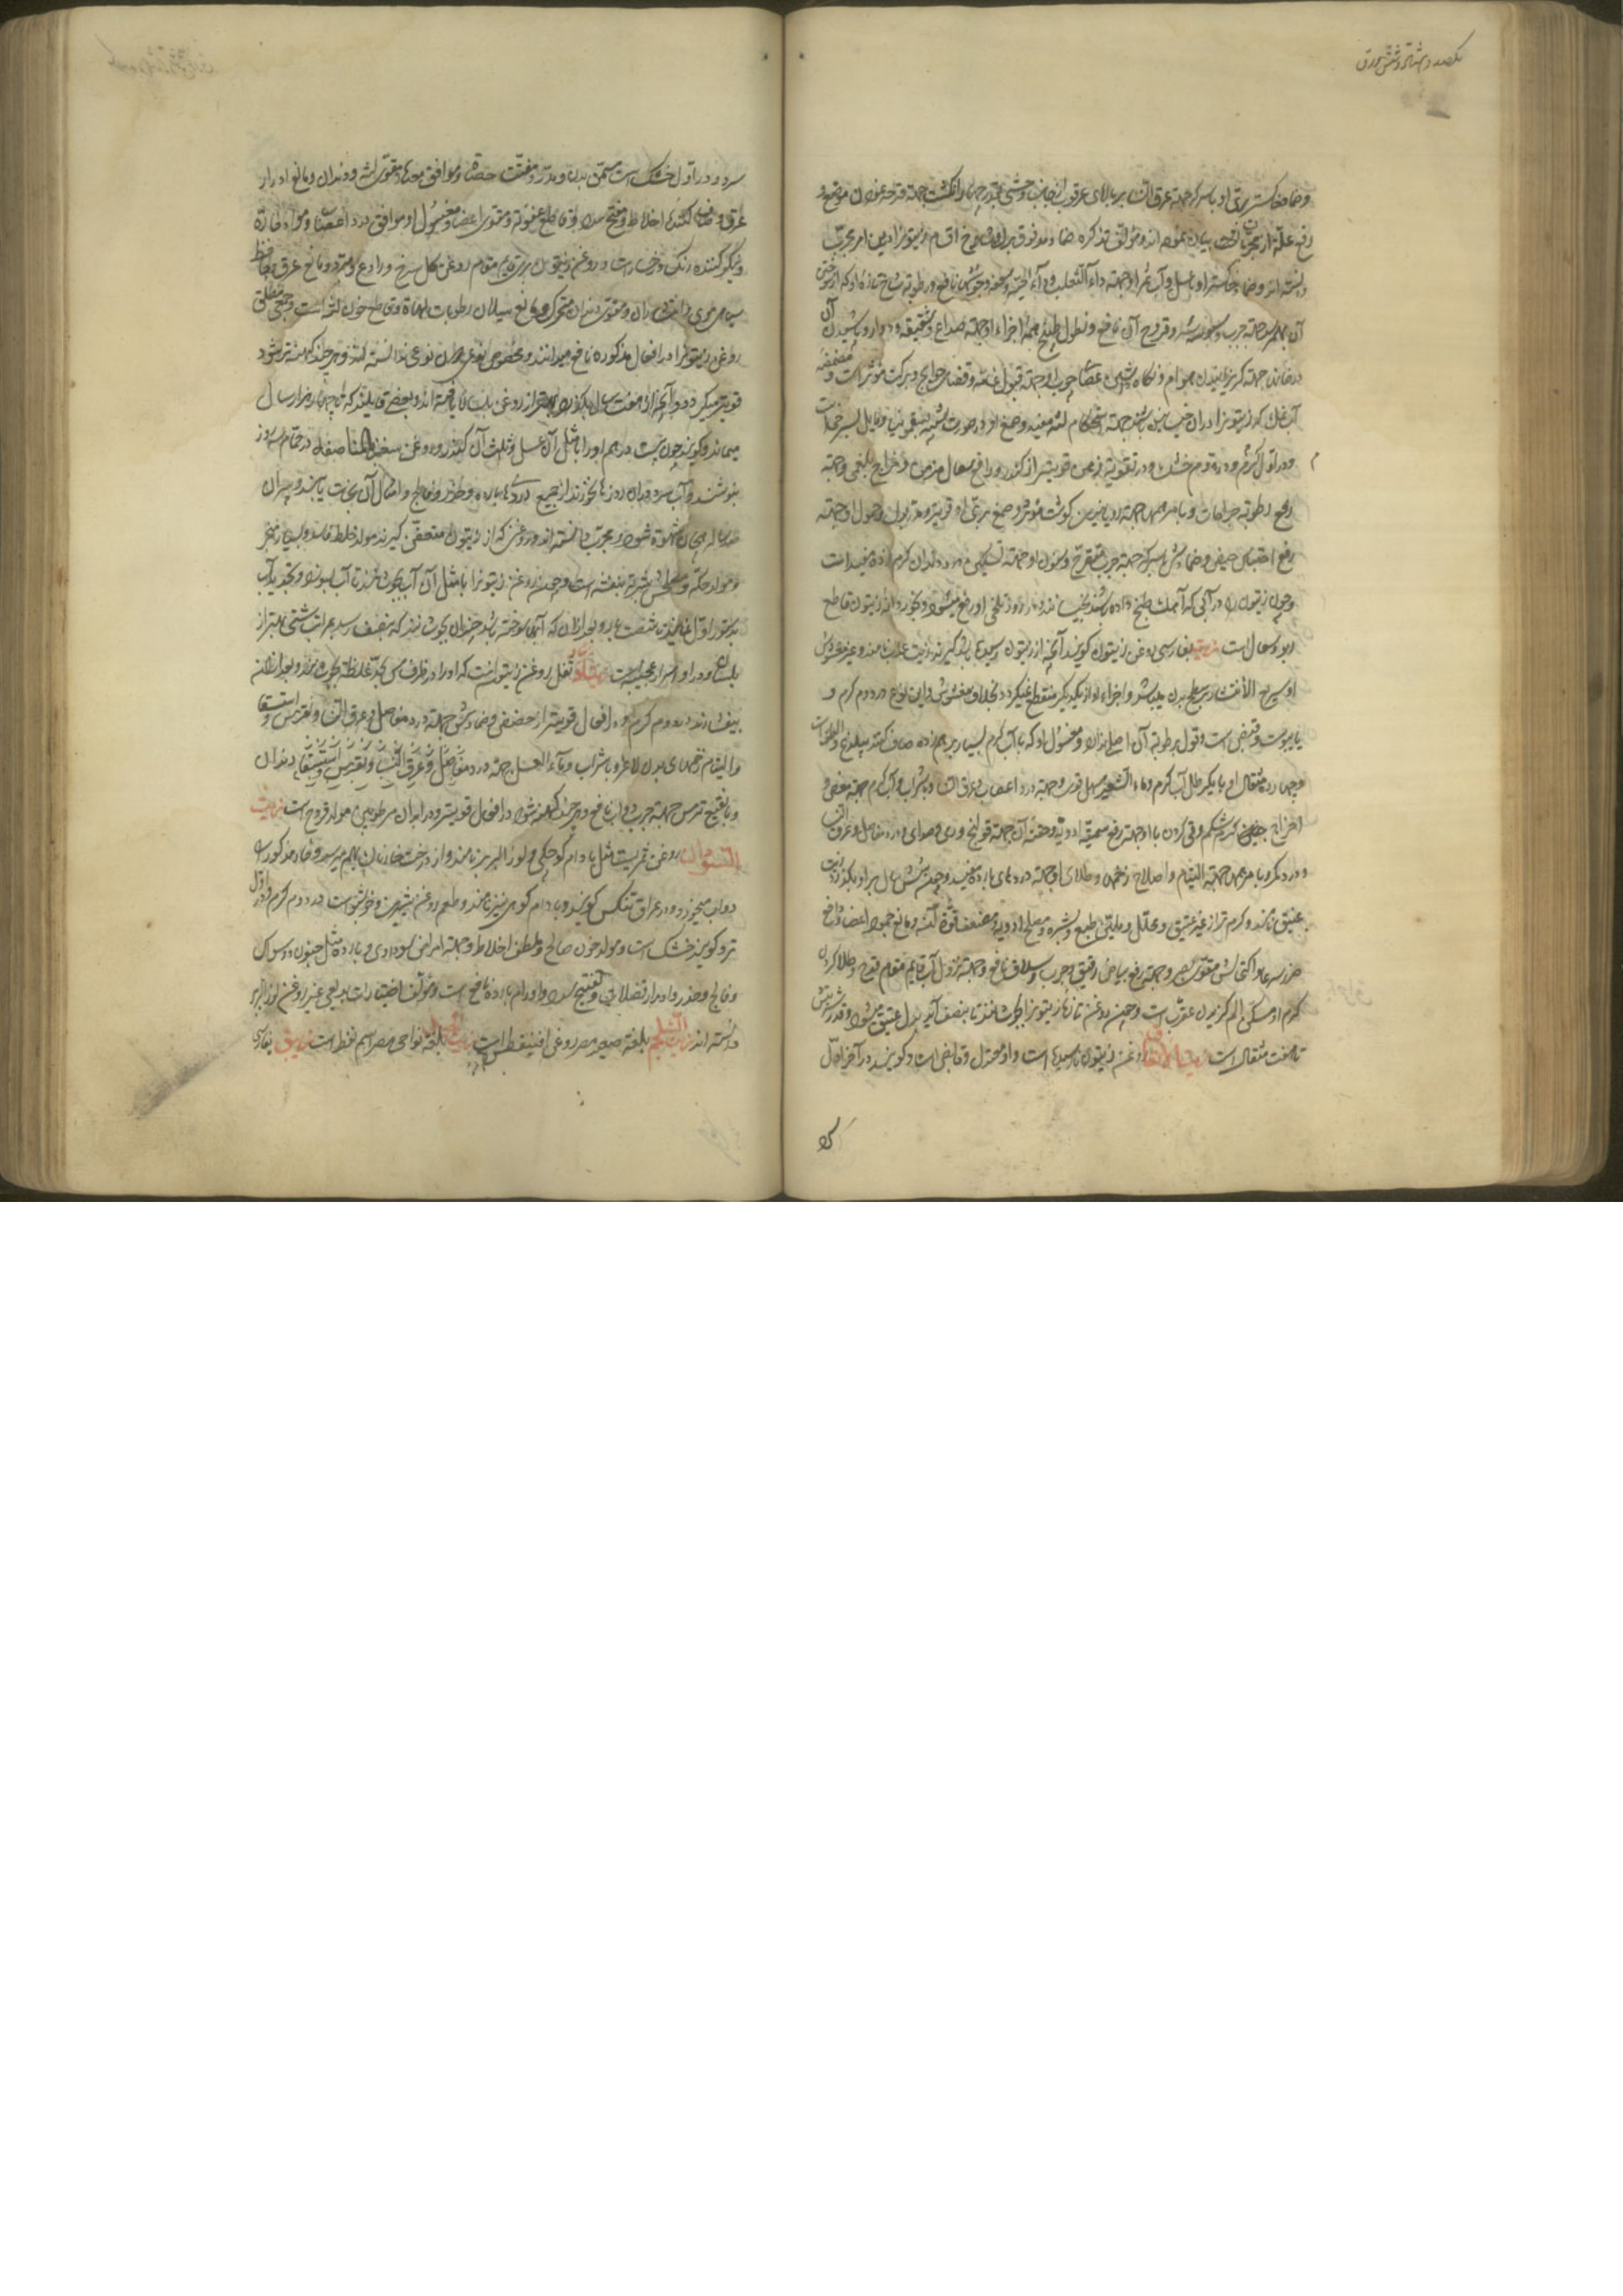 یکصد و هشتاد و شش ورق
وضماد پخته برک او با سرکه جهة عرق النسا بر بالای عرقوب از جانب وحشی بقدر چهار انکشت جهة قرحه نمودن موضع و
رفع علة از مجربات بیان نموده اند و مؤلف تذکره ضماد
دانسته اند وضماد خاکستر او با عسل و آب جهة داء الثعلب و داء الحیة و سعفه نافع و رطوبة شاخ تازه او که از سوختن
آن بهم رسد جهة جرب و قروح آن نافع و نطول طبیخ جمیع اجزاء او جهة صداع و شقیقه و دوار و پاشیدن آن
در خانه جهة کریزانیدن هوام و نکاه داشتن عصای چوب او جهة قبول و قضاء حوایج و برکت مؤثر است و مضمضه
آب نمک که زیتون را در آن خیسانیده باشند جهة استحکام لثه مفید و صمغ او در صورت شبیه بسقمونیا و مایل بسرخی است
و در اول کرم و در دوم خشک و در تقویة ذهن قویتر از کندر و رافع سعال مزمن و اخراج بلغمی و جهة
رفع رطوبة جراحات و با مرهمها جهة رویانیدن کوشت مؤثر و صمغ بری او قویتر و مدر بول و حمول او جهة
رفع احتباس حیض و ضمادش با سرکه جهة جرب متقرح و حمول او جهة تسکین درد دندان کرم زده مفید است
و چون زیتون را در آبی که آهک طبخ داده باشند بخیسانند در روز تلخی او رفع میشود و بخور دانه زیتون قاطع
ربو و سعال است زیت بفارسی روغن زیتون کویند آنچه از زیتون رسیده باشد کیرند زیت عذب نامند و غیر مغشوش
او سریع الانتشار بسطح بدن میباشد و اجزاء او از یکدیکر منقطع نمیکردد بخلاف مغشوش و این نوع در دوم کرم و
با یبوست و قبض است و قول برطوبة آن اصلی ندارد و مغسول او که با آب کرم بسیار برهم زده صاف کنند
و چهارده مثقال او با یکرطل آب کرم و ماء الشعیر مسهل قوی و جهة درد اعصاب و عرق النسا و با شراب و آب کرم جهة مغص و
اخراج کرم شکم و قی کردن با او جهة رفع سمیة ادویه و حقنه آن جهة قولنج و درد مفاصل و عرق النسا
و درد کمر و با مرهمها جهة التیام و اصلاح زخمها و طلای او جهة دردهای بارده مفید و چون شش سال بر او بکذرد زیت
عتیق نامند و کرم تر از غیر عتیق و محلل و ملین طبع و بشره و مصلح ادویه و مضعف قوة آنها و مانع جمود اعضا و دافع
ضرر سرما و اکتحالش مقوی بصر و جهة رفع بیاض رقیق و جرب و سلاق نافع و جهة نزول آب قایم مقام قدح و طلا کردن
کرم او مسکن الم کزیدن عقرب است و چون روغن تازه زیتون را بجوشانند تا بنصف آید بدل عتیق میشود و قدر شربتش
تا هفت مثقال است زیت الانفاق روغن زیتون نارسیده است و او معتدل و قابض است و کویند در آخر اول
سرد و در اول خشک است مسمن بدن و مدر و مفتت حصاة و موافق معده و مقوی لثه و دندان و مانع ادرار
عرق و صاف کننده اخلاط و مفتح سدد و قاطع عفونة و مقوی اعضا و مغسول او موافق درد اعصاب و مواد حارة
و نیکو کننده رنک رخسار است و روغن زیتون بری قایم مقام روغن کل سرخ و رادع و مبرد و مانع عرق و حافظ
سیاهی موی و انتشار آن و مقوی دندان متحرک و مانع سیلان رطوبات لهاة و قاطع خون لثه است و جمعی مطلق
روغن زیتون را در افعال مذکوره نافع میدانند و مخصوص نوعی ندانسته اند و هر چند کهنه تر شود
قویتر میکردد و آنچه از او هفت سال بکذرد بهتر از روغن بلسان یافته اند و بعضی قایلند که تا چهار هزار سال
میماند و کویند چون بیست درهم او را با مثل آن عسل و ثلث آن کندر و روغن در حمام سه روز
بنوشند و آب سرد در آن روزها نخورند از جمیع دردهای بارده و خدر و فالج و امثال آن نجات یابند و پیران
صد ساله را شهوة شود و مجرب دانسته اند و روغنی که از زیتون متعفن کیرند مولد خلط فاسد و بسیار مبخر
و مولد حکه و مصلحش شربة بنفشه است و چون روغن زیتون را با مثل آن آب بجوشانند تا آب بسوزد و تجدید آب
بدستور اول نمایند تا شصت بار و بعد از آن که آنها سوخته باشد چندان بجوشانند که بنصف رسد بمراتب شتی بهتر از
بلسان و در او اسرار عجیبه است زیت ثفل روغن زیتون است که او را در ظرف مس تا بحد غلظة بجوشانند و بعد از آن
بیفشارند در دوم کرم و در افعال قویتر از حضض و ضمادش جهة درد مفاصل و عرق النسا و نقرس و استسقا
و التیام زخمهای بدن لاغر و با شراب و ماء العسل جهة درد مفاصل و عرق النسا و نقرس و استسقا و دندان
و با نقیع ترمس جهة جرب دواب نافع و هر چند کهنه شود در افعال قویتر و در ابدان مرطوبین مولد قروح است زیت
السودان روغن ثمریست مثل بادام کوچکی و لوز البربر نامند و از درخت خاردار بهم میرسد و خار مذکور را
دواب میخورد و در عراق تنکس کویند و بادام کوهی نیز نامند و طعم روغن شیرین و خوشبو است در دوم کرم و در اول
تر و کویند خشک است و مولد خون صالح و ملطف اخلاط و جهة امراض سوداوی و بارده مثل جنون و وسواس
و فالج و خدر و ادرار فضلات و تفتیح سدد و اورام بارده نافع است و مؤلف اختیارات بدیعی غیر روغن لوز البربر
دانسته اند زیت السلجم بلغة صعید مصر روغن است بلغة نواحی مصر اسم نفط است زیبق بفارسی